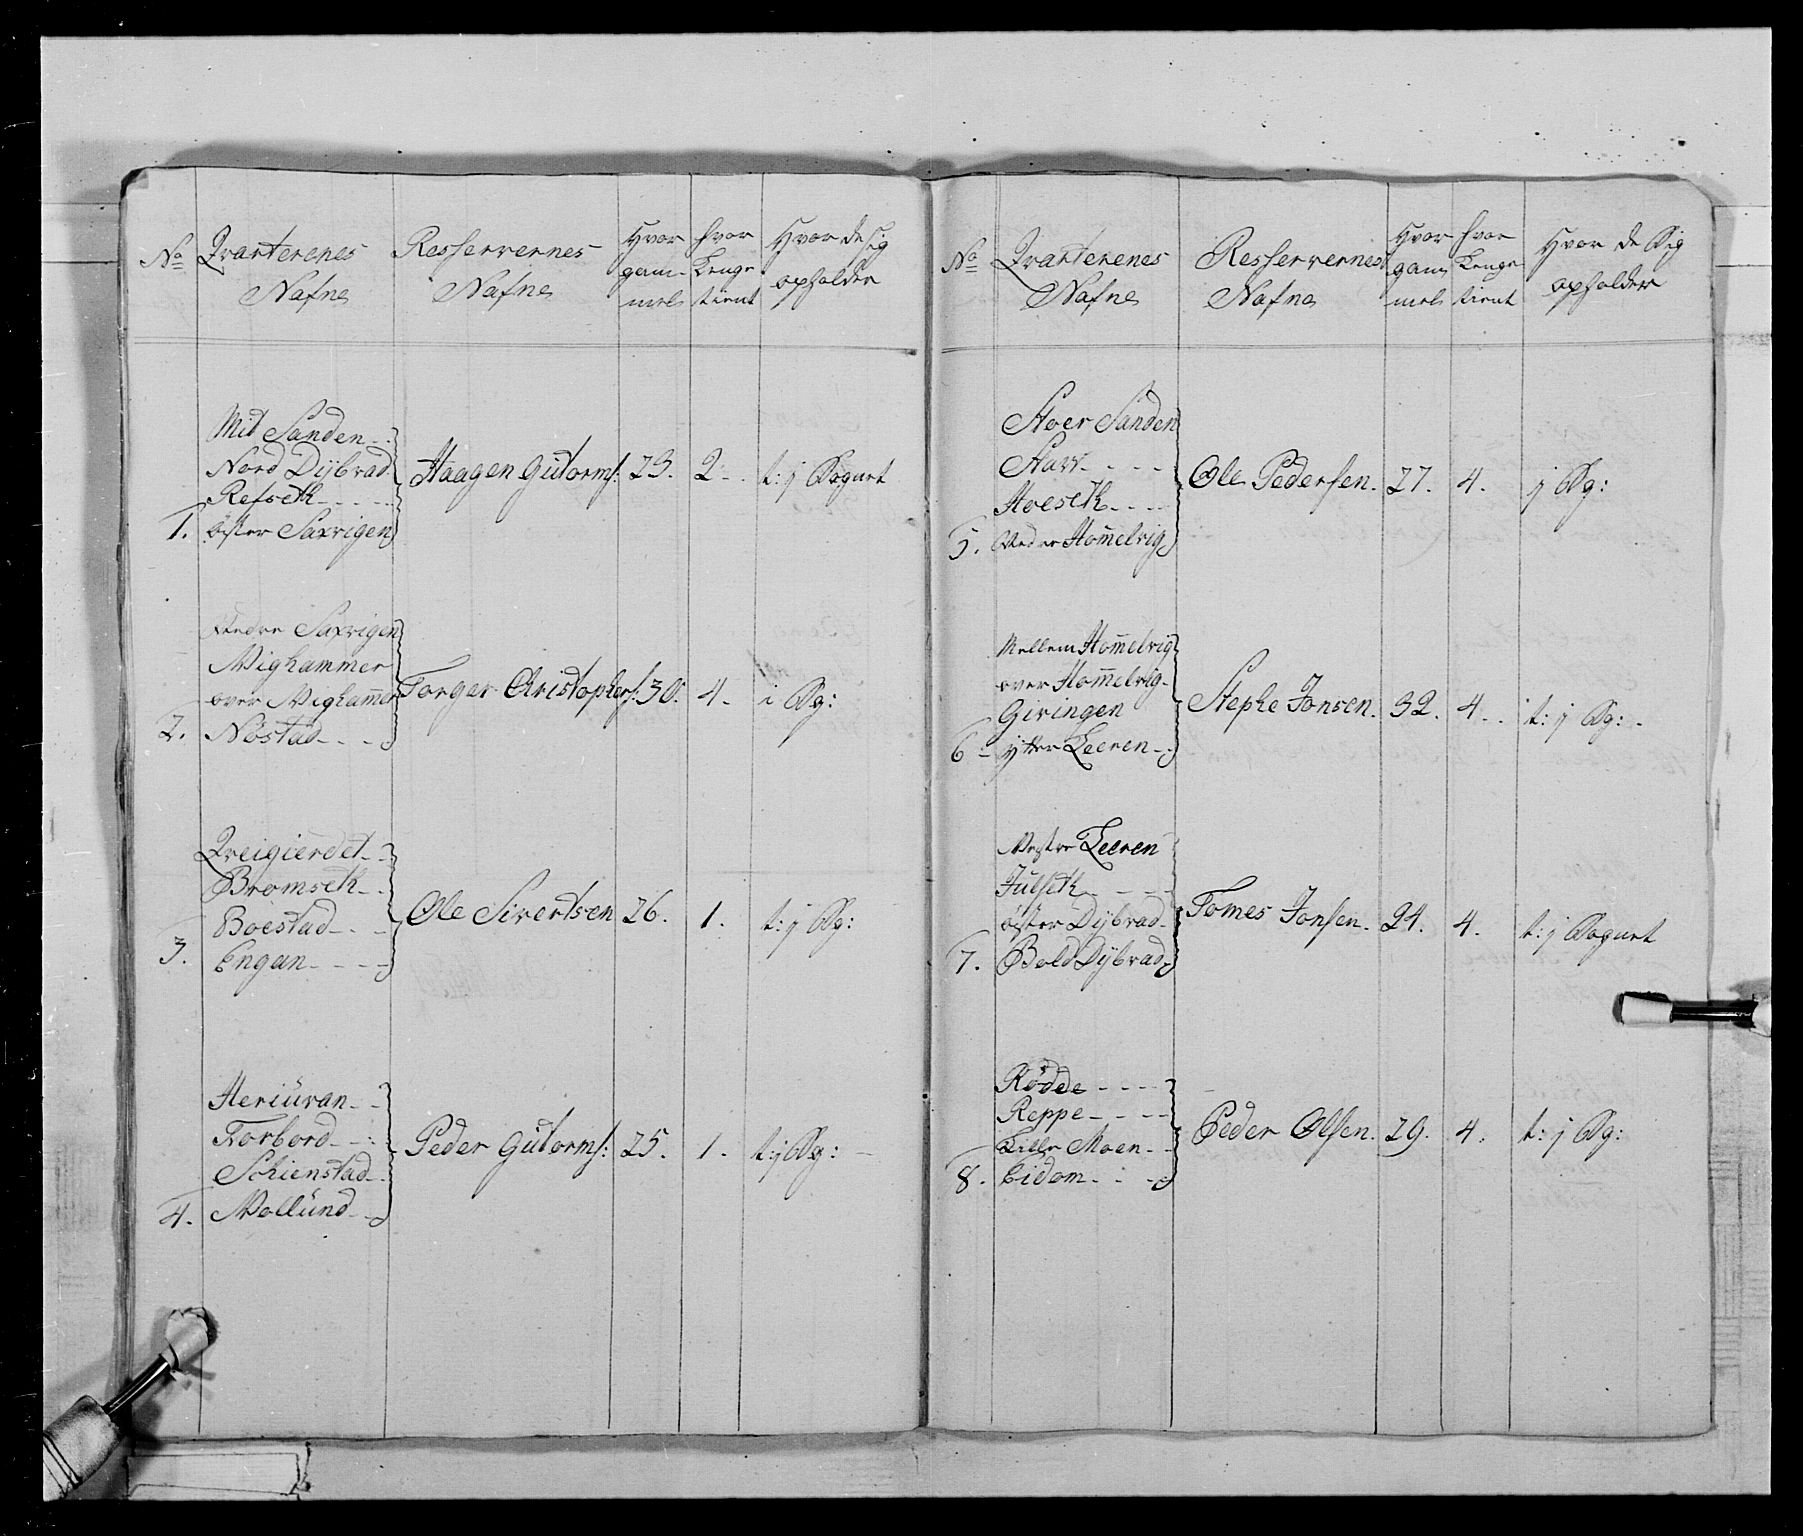 No
Qvarterenes
Nafne
Resserrernes
Nafne
Hvor
gam-
mel
hvor
Lenge
tient
Hvor de sig
opholder
Mid Sanden
Nord Dybvad
Refseth
1. øster Saxvigen
Haagen Gutorms: 23. 2 t: j Sognet
Nedre Saxvigen
Wighammer
over Wighammer
2. Nøstad
Torger Christophers: 30. 4. i Sg:
Qveigierdet
Bromseth
Boestad
3. Engan
Ole Sivertsen 26. 1. t: j Sg:
Heriuvan
Forbord
Schienstad
4. Wollund
Peder Gutorms: 25. 1. t: j Sg:
No
Qvarterenes
Nafne
Resserrernes
Nafne
Hvor
gam
mel
hvor
Lenge
tient
Hvor de Sig
opholder
Stoer Sanden
Stav
Hoeseth
5. Nedre Hom̅elvig
Ole Pedersen. 27. 4. j Sg:
Mellem Hom̅elvig
over Hom̅elvig
Givingen
6 ytter Leeren
Stephe Jonsen. 32. 4. t: j Sg:
Vestre Leeren
Julseth
øster Dybvad
7. Bold Dybvad
Tomes Jonsen. 24. 4. t: j Sognet
Rødde
Reppe
Lille Moen
8. Eidom
Peder Olsen. 29. 4. t: j Sg: